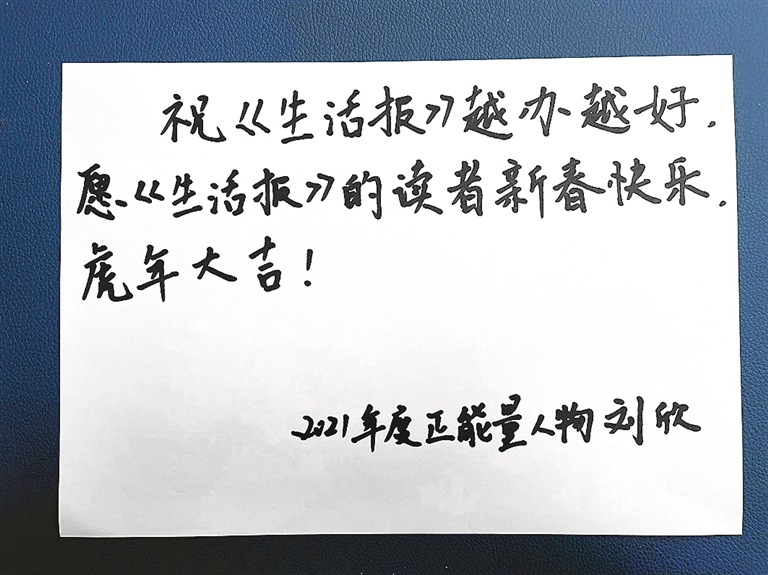 祝《生活报》越办越好.
愿《生活报》的读者新春快乐.
虎年大吉!
2021年度正能量人物 刘欣